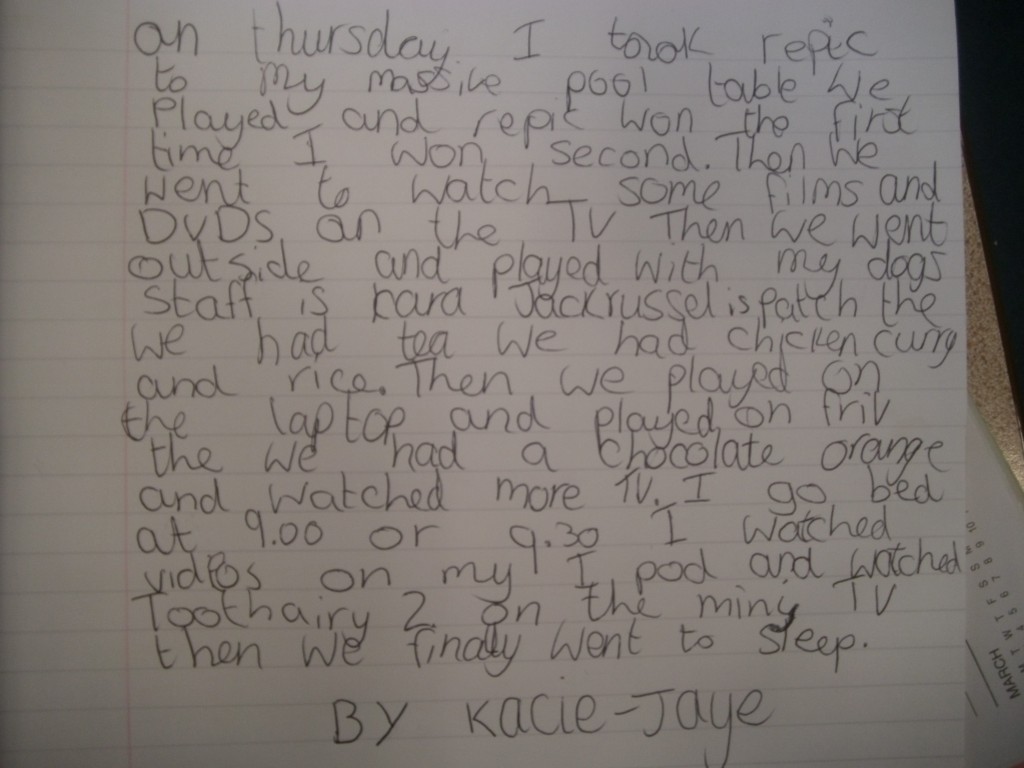 an thursday I took repic
to my massive pool table We
Played and repic won the first
time I won second. Then We
went to watch some films and
DVDS an the TV Then we went
outside and played with my dogs
Staff is kara Jackrussel is patch the
we had tea we had chicken curry
and rice. Then we played on
the laptop and played on friv
the we had a chocolate orange
and watched more TV. I go bed
at 9.00 or 9.30 I watched
videos on my I pod and watched
Toothairy 2 on the miny TV
then we finally went to sleep.
BY Kacie-Jaye
MARCH